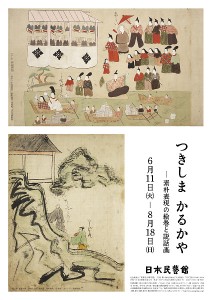 つきしま かるかや
―素朴表現の絵巻と説話画
6月11日(火)―8月18日(日)
日本民藝館